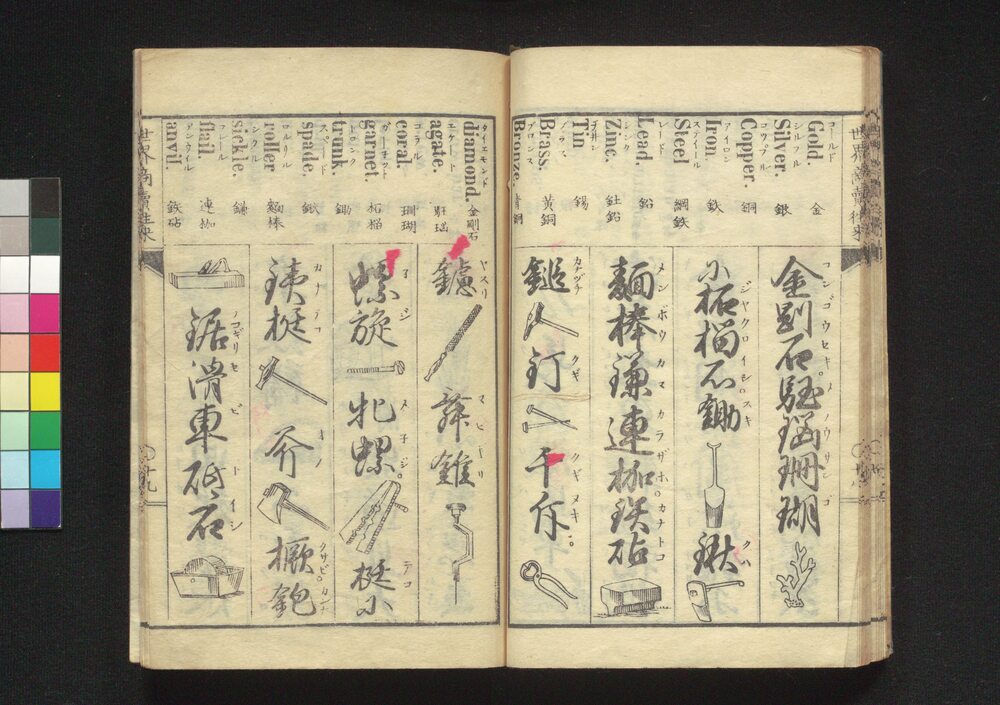 世界商賣往来
Gold. ゴールド 金
Silver. シルフル 銀
Copper. コツプル 銅
Iron アイロン 鉄
Steel スティール 鋼鉄
Lead. レード 鉛
Zinc. ジンク 鉛
Tin チン 錫
Brass. ブラス 黄銅
Bronze. ブロンス 青銅
金剛石瑪瑙珊瑚 コンゴウセキ メノウ サンゴ
小柘榴石 ジヤクロイシ 鋤 スキ
鍬 クハ
麺棒 メンボウ 鎌 カマ 連枷 カラザホ 鉄砧 カナトコ
鎚 カナヅチ 釘 クギ 千斤 クギヌキ
diamond. ダイエモンド 金剛石
agate. エゲート 瑪瑙
coral. コラル 珊瑚
garnet. ガーネツト 柘榴
trunk. トロンク 鋤
spade. スペード 鍬
roller ロルリル 麺棒
sickle. シクル 鎌
flail. フレール 連枷
anvil. アンウイル 鉄砧
鑢 ヤスリ 舞錐 マヒギリ
螺旋 子ジ 牝螺 メ子ジ 梃 テコ 小
鉄梃 カナテコ 斧 オノ 橛 クサビ 鉋 カンナ
鋸 ノコギリ 滑車 セビ 砥石 トイシ
世界商賣往来
十九